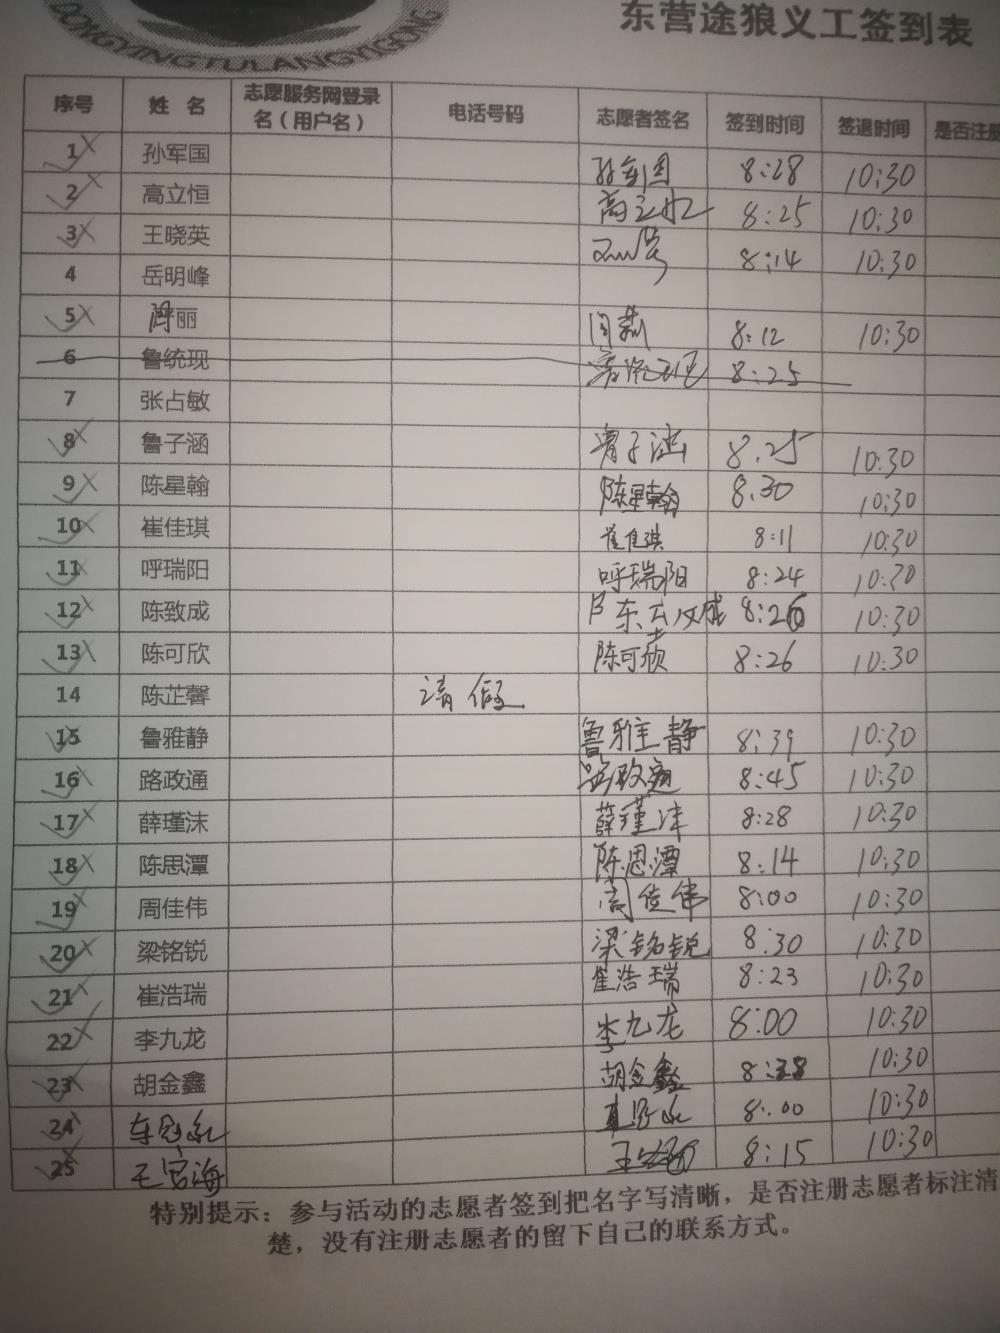 DONGYINGTULANGYIGONG
东营途狼义工签到表
序号 姓 名 志愿服务网登录名（用户名） 电话号码 志愿者签名 签到时间 签退时间 是否注册
1 孙军国 孙军国 8:28 10:30
2 高立恒 高立恒 8:25 10:30
3 王晓英 8:14 10:30
4 岳明峰
5 丽 8:12 10:30
6 鲁统现 鲁统现 8:25
7 张占敏
8 鲁子涵 鲁子涵 8.25 10:30
9 陈星翰 陈星翰 8.30 10:30
10 崔佳琪 崔佳琪 8:11 10:30
11 呼瑞阳 呼瑞阳 8:24 10:30
12 陈致成 陈致成 8:26 10:30
13 陈可欣 陈可欣 8:26 10:30
14 陈芷馨 请假
15 鲁雅静 鲁雅静 8:39 10:30
16 路政通 路政通 8:45 10:30
17 薛瑾沫 薛瑾沫 8:28 10:30
18 陈思潭 陈思潭 8:14 10:30
19 周佳伟 周佳伟 8:00 10:30
20 梁铭锐 梁铭锐 8:30 10:30
21 崔浩瑞 崔浩瑞 8:23 10:30
22 李九龙 李九龙 8:00 10:30
23 胡金鑫 胡金鑫 8:38 10:30
24 8:00 10:30
25 王 海 王 8:15 10:30
特别提示：参与活动的志愿者签到把名字写清晰，是否注册志愿者标注清
楚，没有注册志愿者的留下自己的联系方式。